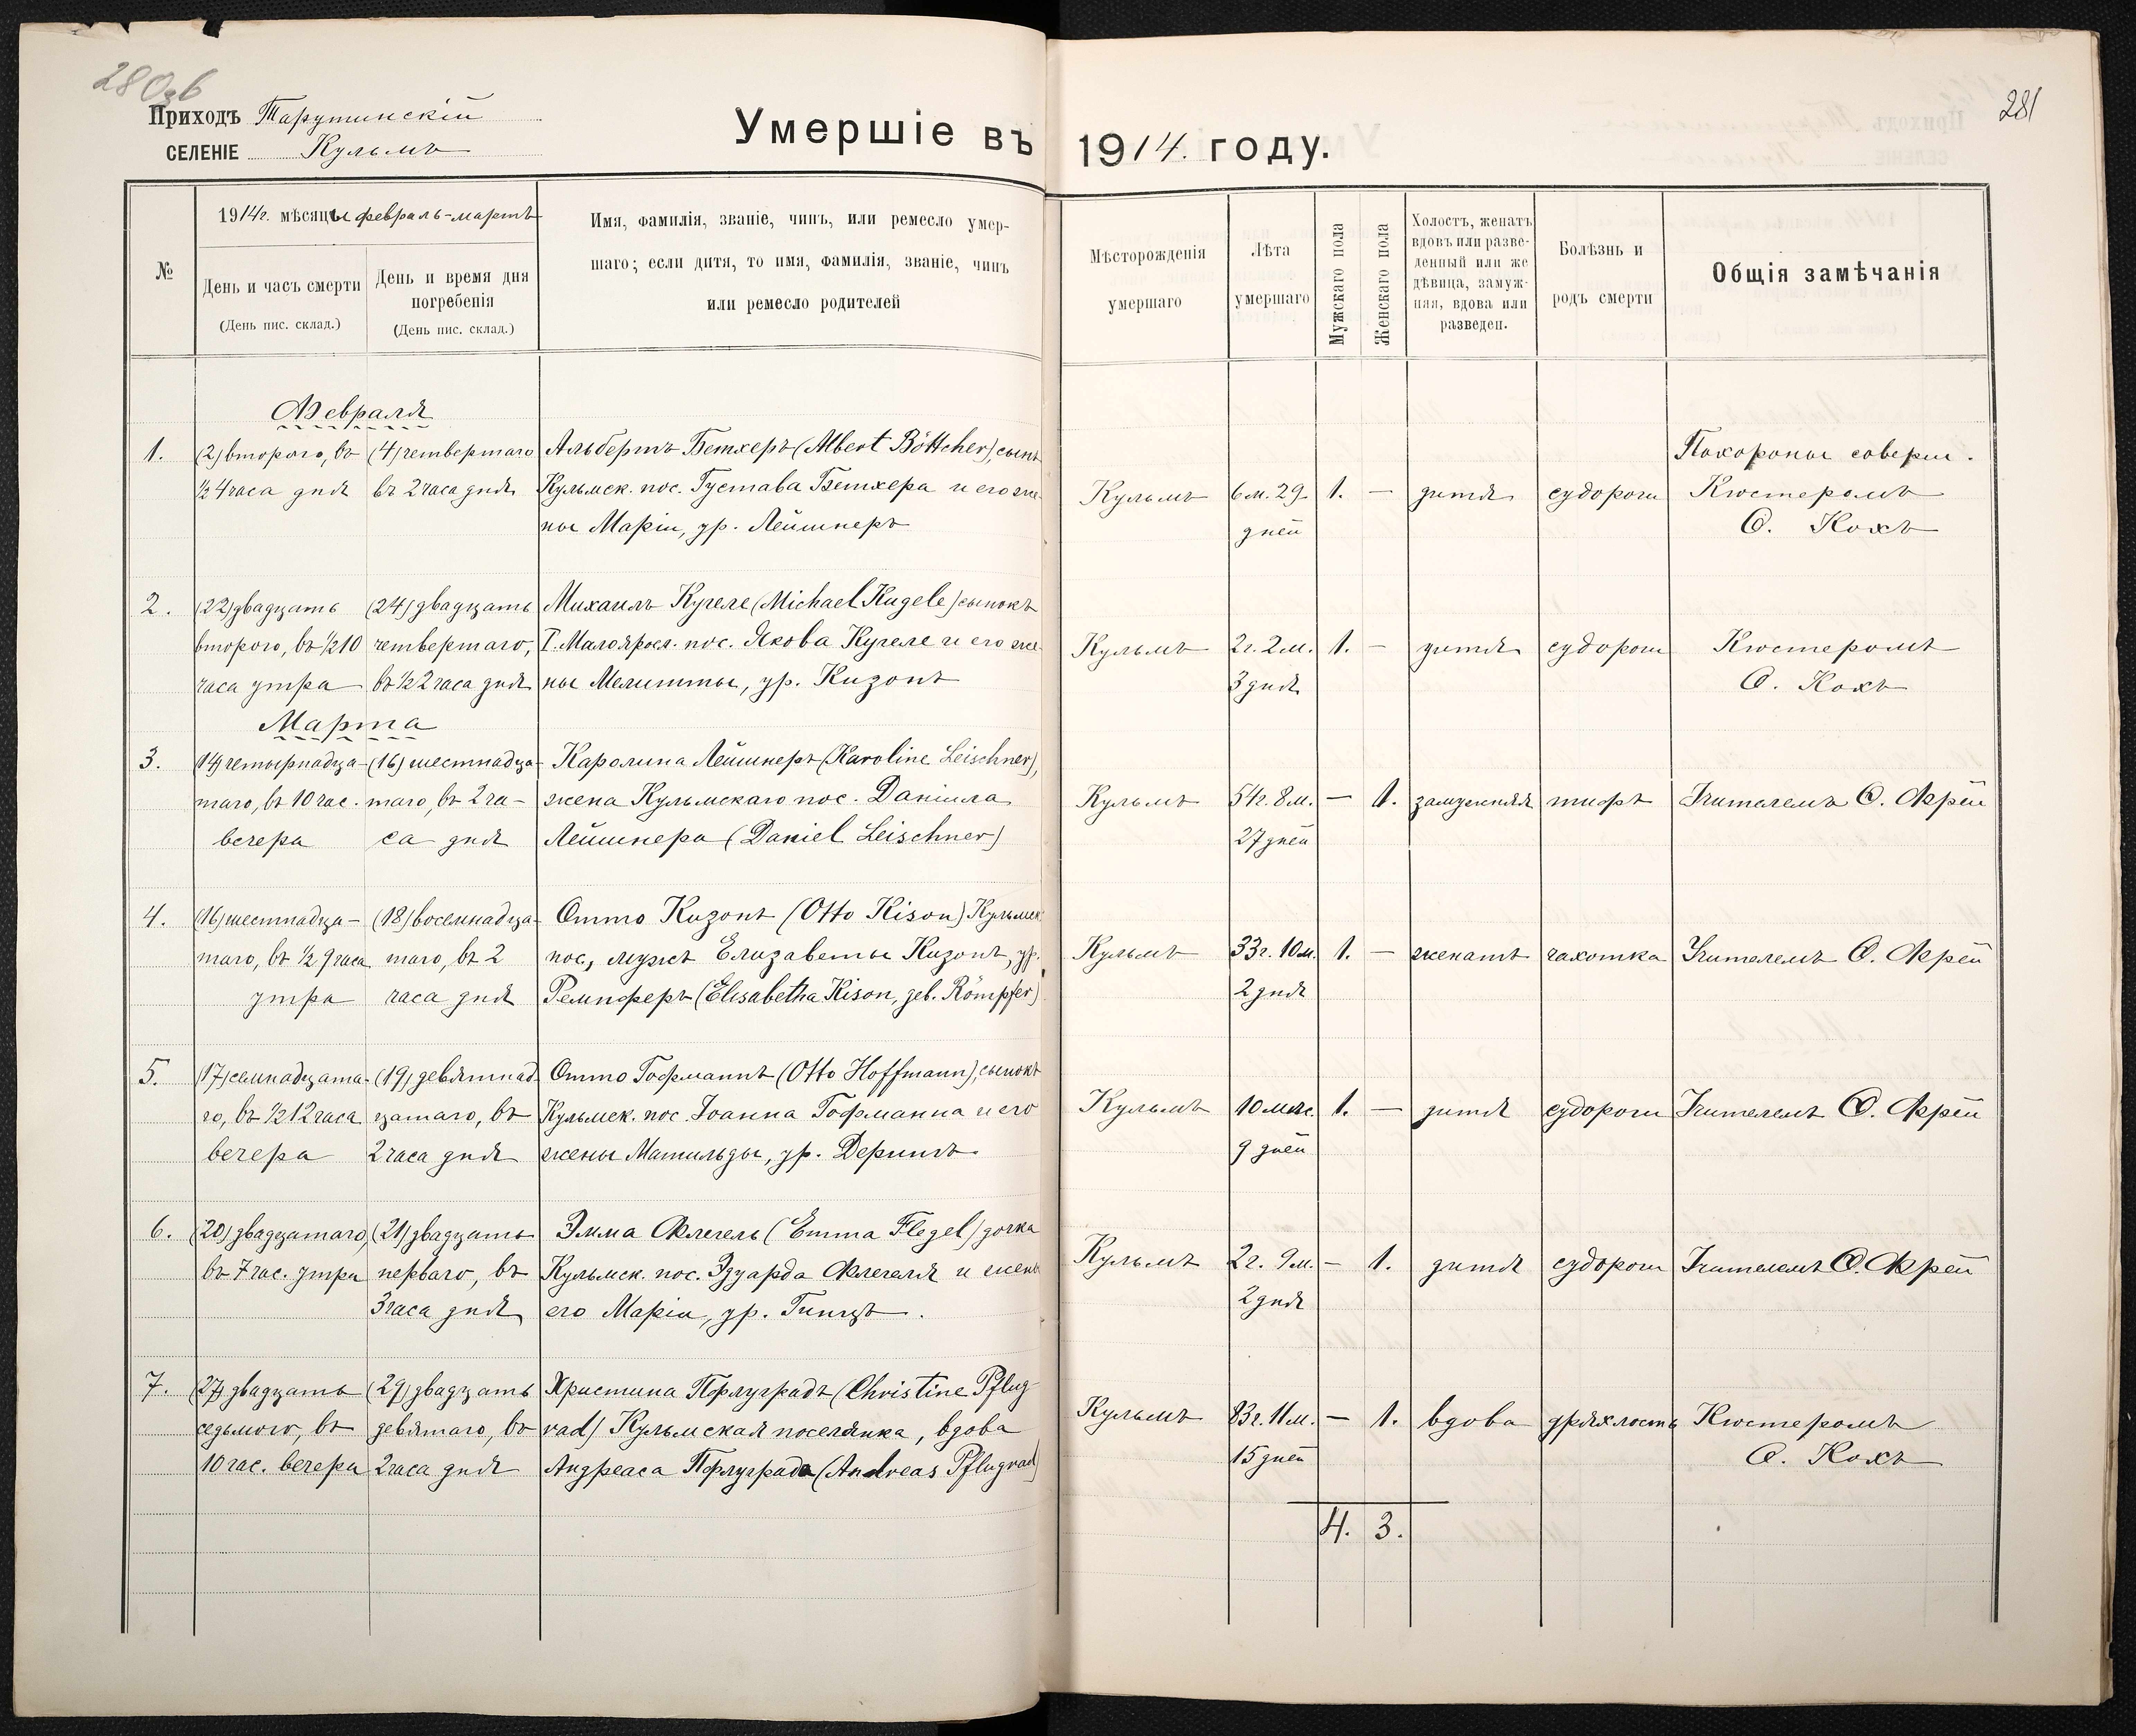 280зб
281
Приходъ Тарутинскій
СЕЛЕНІЕ Кульмъ
Умершіе въ 1914. году.
№
1914г. мѣсяцы февраль-мартъ
День и часъ смерти
(День пис. склад.)
День и время дня
погребенія
(День пис. склад.)
Имя, фамилія, званіе, чинъ, или ремесло умер-
шаго; если дитя, то имя, фамилія, званіе, чинъ
или ремесло родителей
Мѣсторожденія
умершаго
Лѣта
умершаго
Мужскаго пола
Женскаго пола
Холостъ, женатъ
вдовъ или разве-
денный или же
дѣвица, замуж-
няя, вдова или
разведен.
Болѣзнь и
родъ смерти
Общія замѣчанія
Февраля
1.
(2) второго, въ
½ 4 часа дня
(4) четвертаго
въ 2 часа дня
Альбертъ Бетхеръ (Albert Böttcher), сынъ
Кульмск. пос. Густава Бетхера и его же-
ны Маріи, ур. Лейшнеръ
Кульмъ
6 м. 29
дней
1.
—
дитя
судороги
Похороны соверш.
Кюстеромъ
О. Кохъ
2.
(22) двадцать
второго, въ ½ 10
часа утра
(24) двадцать
четвертаго,
въ ½ 2 часа дня
Михаилъ Кугеле (Michael Kugele) сынокъ
I. Малояросл. пос. Якова Кугеле и его же-
ны Мелитты, ур. Кизонъ
Кульмъ
2г. 2м.
3 дня
1.
—
дитя
судороги
Кюстеромъ
О. Кохъ
Марта
3.
(14) четырнадца-
таго, въ 10 час.
вечера
(16) шестнадца-
таго, въ 2 ча-
са дня
Каролина Лейшнеръ (Karoline Leischner),
жена Кульмскаго пос. Даніила
Лейшнера (Daniel Leischner)
Кульмъ
54г. 8м.
27 дней
—
1.
замужняя
тифъ
Учителемъ О. Фрей
4.
(16) шестнадца-
таго, въ ½ 9 часа
утра
(18) восемнадца-
таго, въ 2
часа дня
Отто Кизонъ (Otto Kison) Кульмск.
пос., мужъ Елизаветы Кизонъ, ур.
Ремпферъ (Elisabetha Kison, geb. Römpfer)
Кульмъ
33г. 10м.
2 дня
1.
—
женатъ
чахотка
Учителемъ О. Фрей
5.
(17) семнадцата-
го, въ ½ 12 часа
вечера
(19) девятнад-
цатаго, въ
2 часа дня
Отто Гофманнъ (Otto Hoffmann), сынокъ
Кульмск. пос. Іоанна Гофманна и его
жены Матильды, ур. Derингъ
Кульмъ
10 мѣс.
9 дней
1.
—
дитя
судороги
Учителемъ О. Фрей
6.
(20) двадцатаго,
въ 7 час. утра
(21) двадцать
перваго, въ
3 часа дня
Эмма Флегель (Emma Flegel) дочка
Кульмск. пос. Эдуарда Флегеля и жены
его Маріи, ур. Гинцъ.
Кульмъ
2г. 9м.
2 дня
—
1.
дитя
судороги
Учителемъ О. Фрей
7.
(27) двадцать
седьмого, въ
10 час. вечера
(29) двадцать
девятаго, въ
2 часа дня
Христина Пфлуградъ (Christine Pflug-
rad) Кульмская поселянка, вдова
Андреаса Пфлуграда (Andreas Pflugrad)
Кульмъ
83г. 11м.
15 дней
—
1.
вдова
дряхлость
Кюстеромъ
О. Кохъ
4. 3.